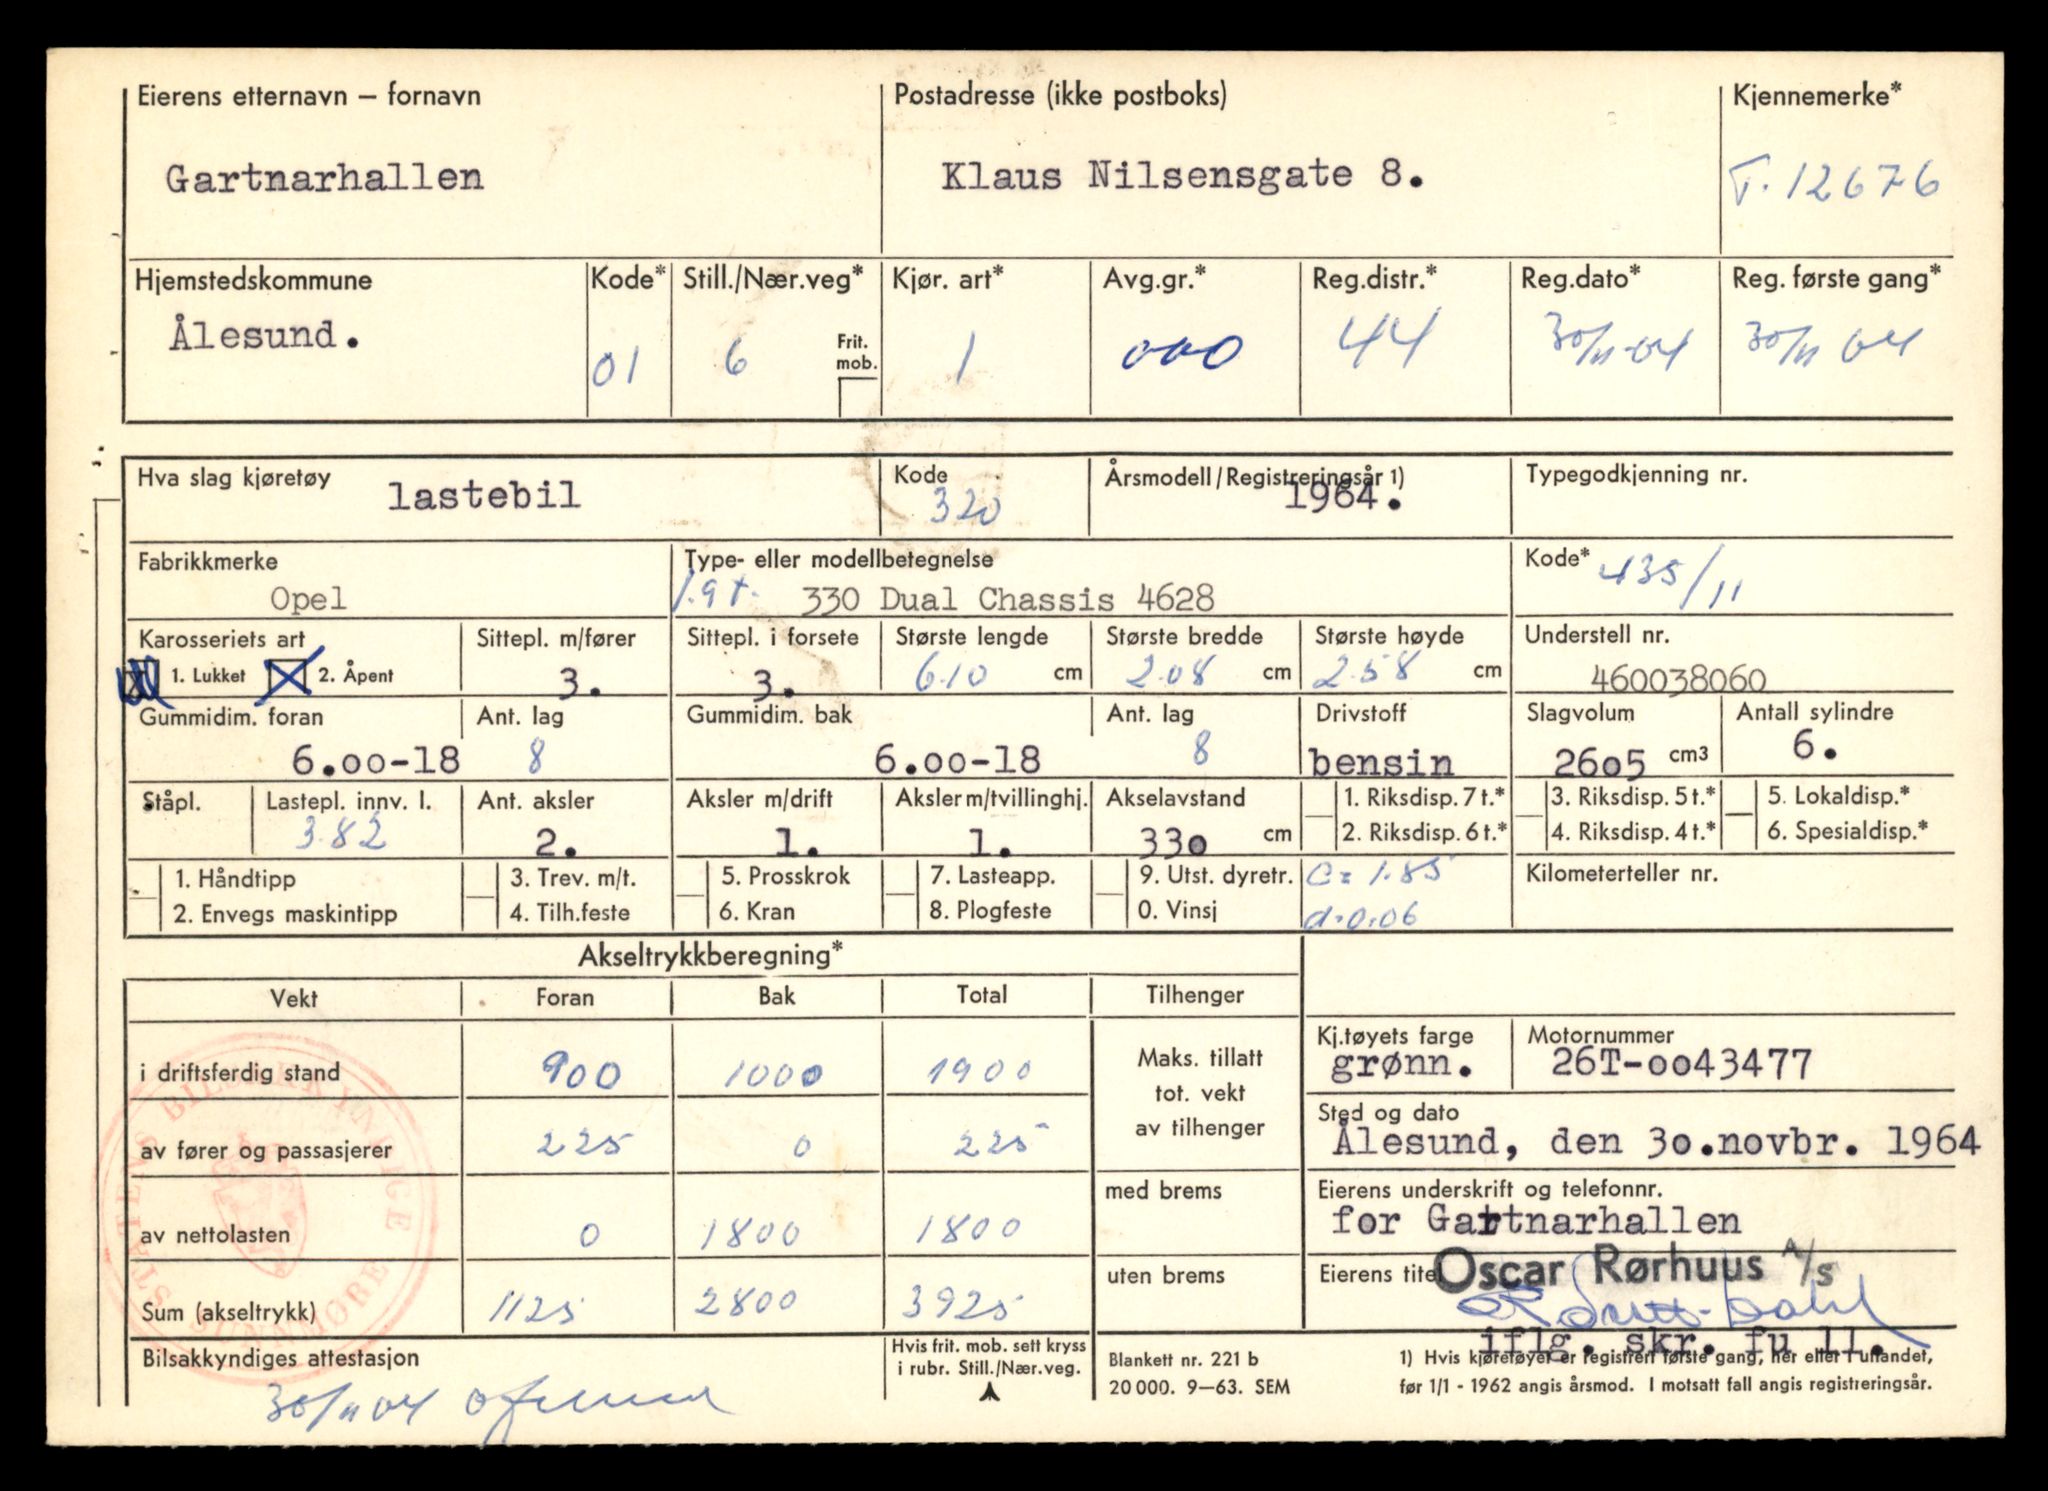 Eierens etternavn – fornavn
Gartnarhallen
Postadresse (ikke postboks)
Klaus Nilsensgate 8.
Kjennemerke*
T. 12676
Hjemstedskommune
Ålesund.
Kode*
01
Still./Nær.veg*
6
Frit.
mob.
Kjør. art*
1
Avg.gr.*
000
Reg.distr.*
44
Reg.dato*
30/11-64
Reg. første gang*
30/11 64
Hva slag kjøretøy
lastebil
Kode
320
Årsmodell/Registreringsår 1)
1964.
Typegodkjenning nr.
Fabrikkmerke
Opel
Type- eller modellbetegnelse
1.9t. 330 Dual Chassis 4628
Kode*
435/11
Karosseriets art
1. Lukket
2. Åpent
Sittepl. m/fører
3.
Sittepl. i forsete
3.
Største lengde
6.10 cm
Største bredde
2.08 cm
Største høyde
2.58 cm
Understell nr.
460038060
Gummidim. foran
6.00-18
Ant. lag
8
Gummidim. bak
6.00-18
Ant. lag
8
Drivstoff
bensin
Slagvolum
2605 cm3
Antall sylindre
6.
Ståpl.
Lastepl. innv. l.
3.82
Ant. aksler
2.
Aksler m/drift
1.
Aksler m/tvillinghj.
1.
Akselavstand
330 cm
1. Riksdisp. 7 t.*
2. Riksdisp. 6 t.*
3. Riksdisp. 5 t.*
4. Riksdisp. 4 t.*
5. Lokaldisp.*
6. Spesialdisp.*
1. Håndtipp
2. Envegs maskintipp
3. Trev. m/t.
4. Tilh.feste
5. Prosskrok
6. Kran
7. Lasteapp.
8. Plogfeste
9. Utst. dyretr.
0. Vinsj
C= 1.85
d.0.06
Kilometerteller nr.
Akseltrykkberegning*
Vekt Foran Bak Total Tilhenger
i driftsferdig stand 900 1000 1900
av fører og passasjerer 225 0 225
av nettolasten 0 1800 1800
Sum (akseltrykk) 1125 2800 3925
Maks. tillatt
tot. vekt
av tilhenger
med brems
uten brems
Kj.tøyets farge
grønn.
Motornummer
26T-0043477
Sted og dato
Ålesund, den 30.novbr. 1964
Eierens underskrift og telefonnr.
for Gartnarhallen
Eierens titel
Oscar Rørhuus A/S
iflg. skr. fu ll.
STATENS BILSAKKYNDIGE
SUNNMØRE
Bilsakkyndiges attestasjon
30/11 64
Hvis frit. mob. sett kryss
i rubr. Still./Nær.veg.
Blankett nr. 221 b
20 000. 9–63. SEM
1) Hvis kjøretøyet er registrert første gang, her eller i utlandet,
før 1/1 - 1962 angis årsmod. I motsatt fall angis registreringsår.